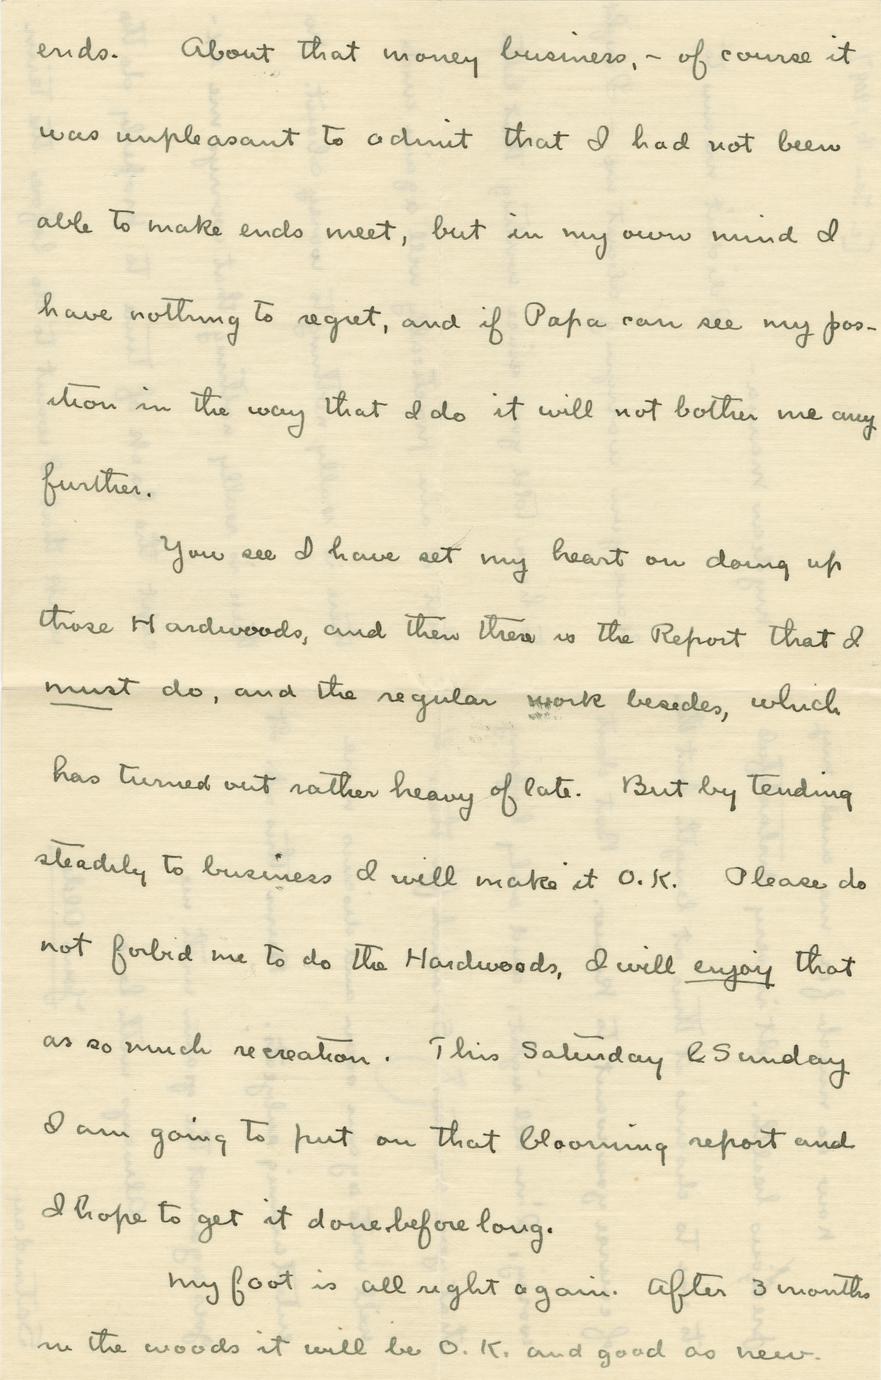 ends. About that money business, - of course it
was unpleasant to admit that I had not been
able to make ends meet, but in my own mind I
have nothing to regret, and if Papa can see my pos-
ition in the way that I do it will not bother me any
further.
You see I have set my heart on doing up
those Hardwoods, and then there is the Report that I
must do, and the regular work besedes, which
has turned out rather heavy of late. But by tending
steadily to business I will make it O.K. Please do
not forbid me to do the Hardwoods, I will enjoy that
as so much recreation. This Saturday & Sunday
I am going to put on that blooming report and
I hope to get it done before long.
My foot is all right again. After 3 months
in the woods it will be O.K. and good as new.